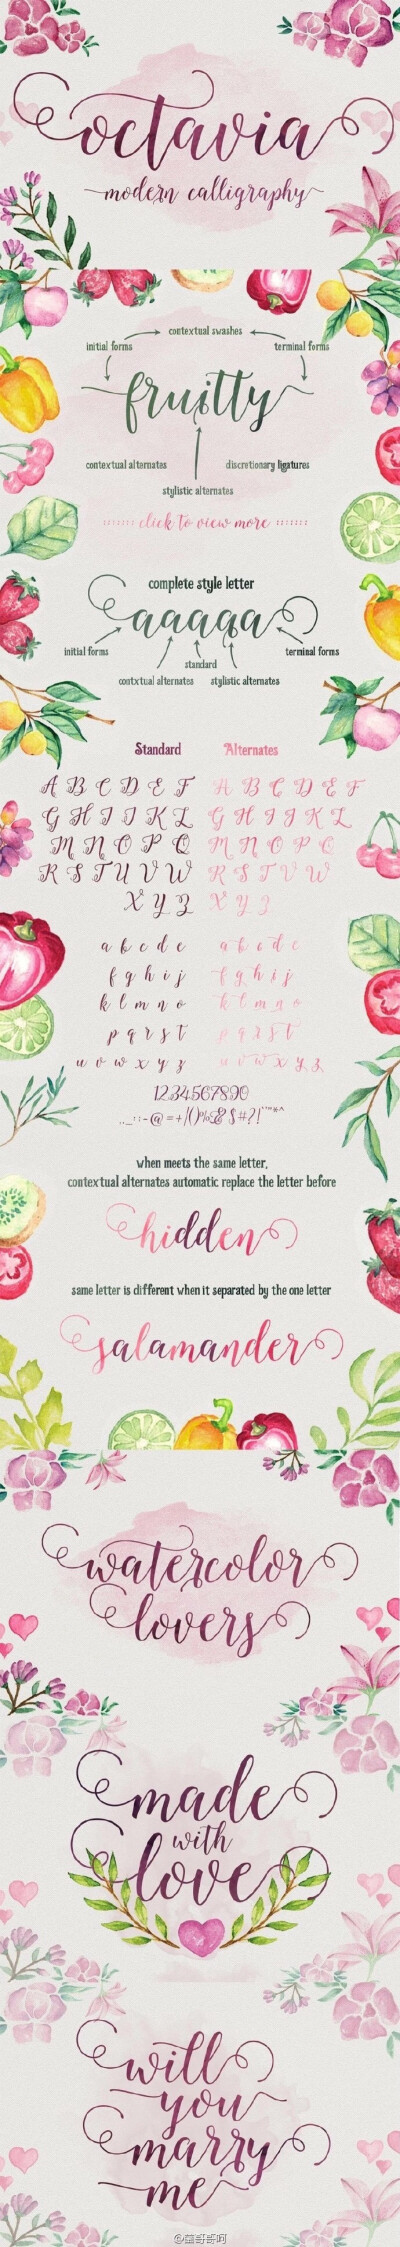 octavia
modern calligraphy
contextual swashes
initial forms terminal forms
fruitty
contextual alternates discretionary ligatures
stylistic alternates
click to view more
complete style letter
aaaaa
initial forms terminal forms
standard
contxtual alternates stylistic alternates
Standard Alternates
A B C D E F A B C D E F
G H I J K L G H I J K L
M N O P Q M N O P Q
R S T U V W R S T U V W
X Y Z X Y Z
a b c d e a b c d e
f g h i j f g h i j
k l m n o k l m n o
p q r s t p q r s t
u v w x y z u v w x y z
1234567890
when meets the same letter,
contextual alternates automatic replace the letter before
hidden
same letter is different when it separated by the one letter
salamander
watercolor
lovers
made
with
love
will
you
marry
me